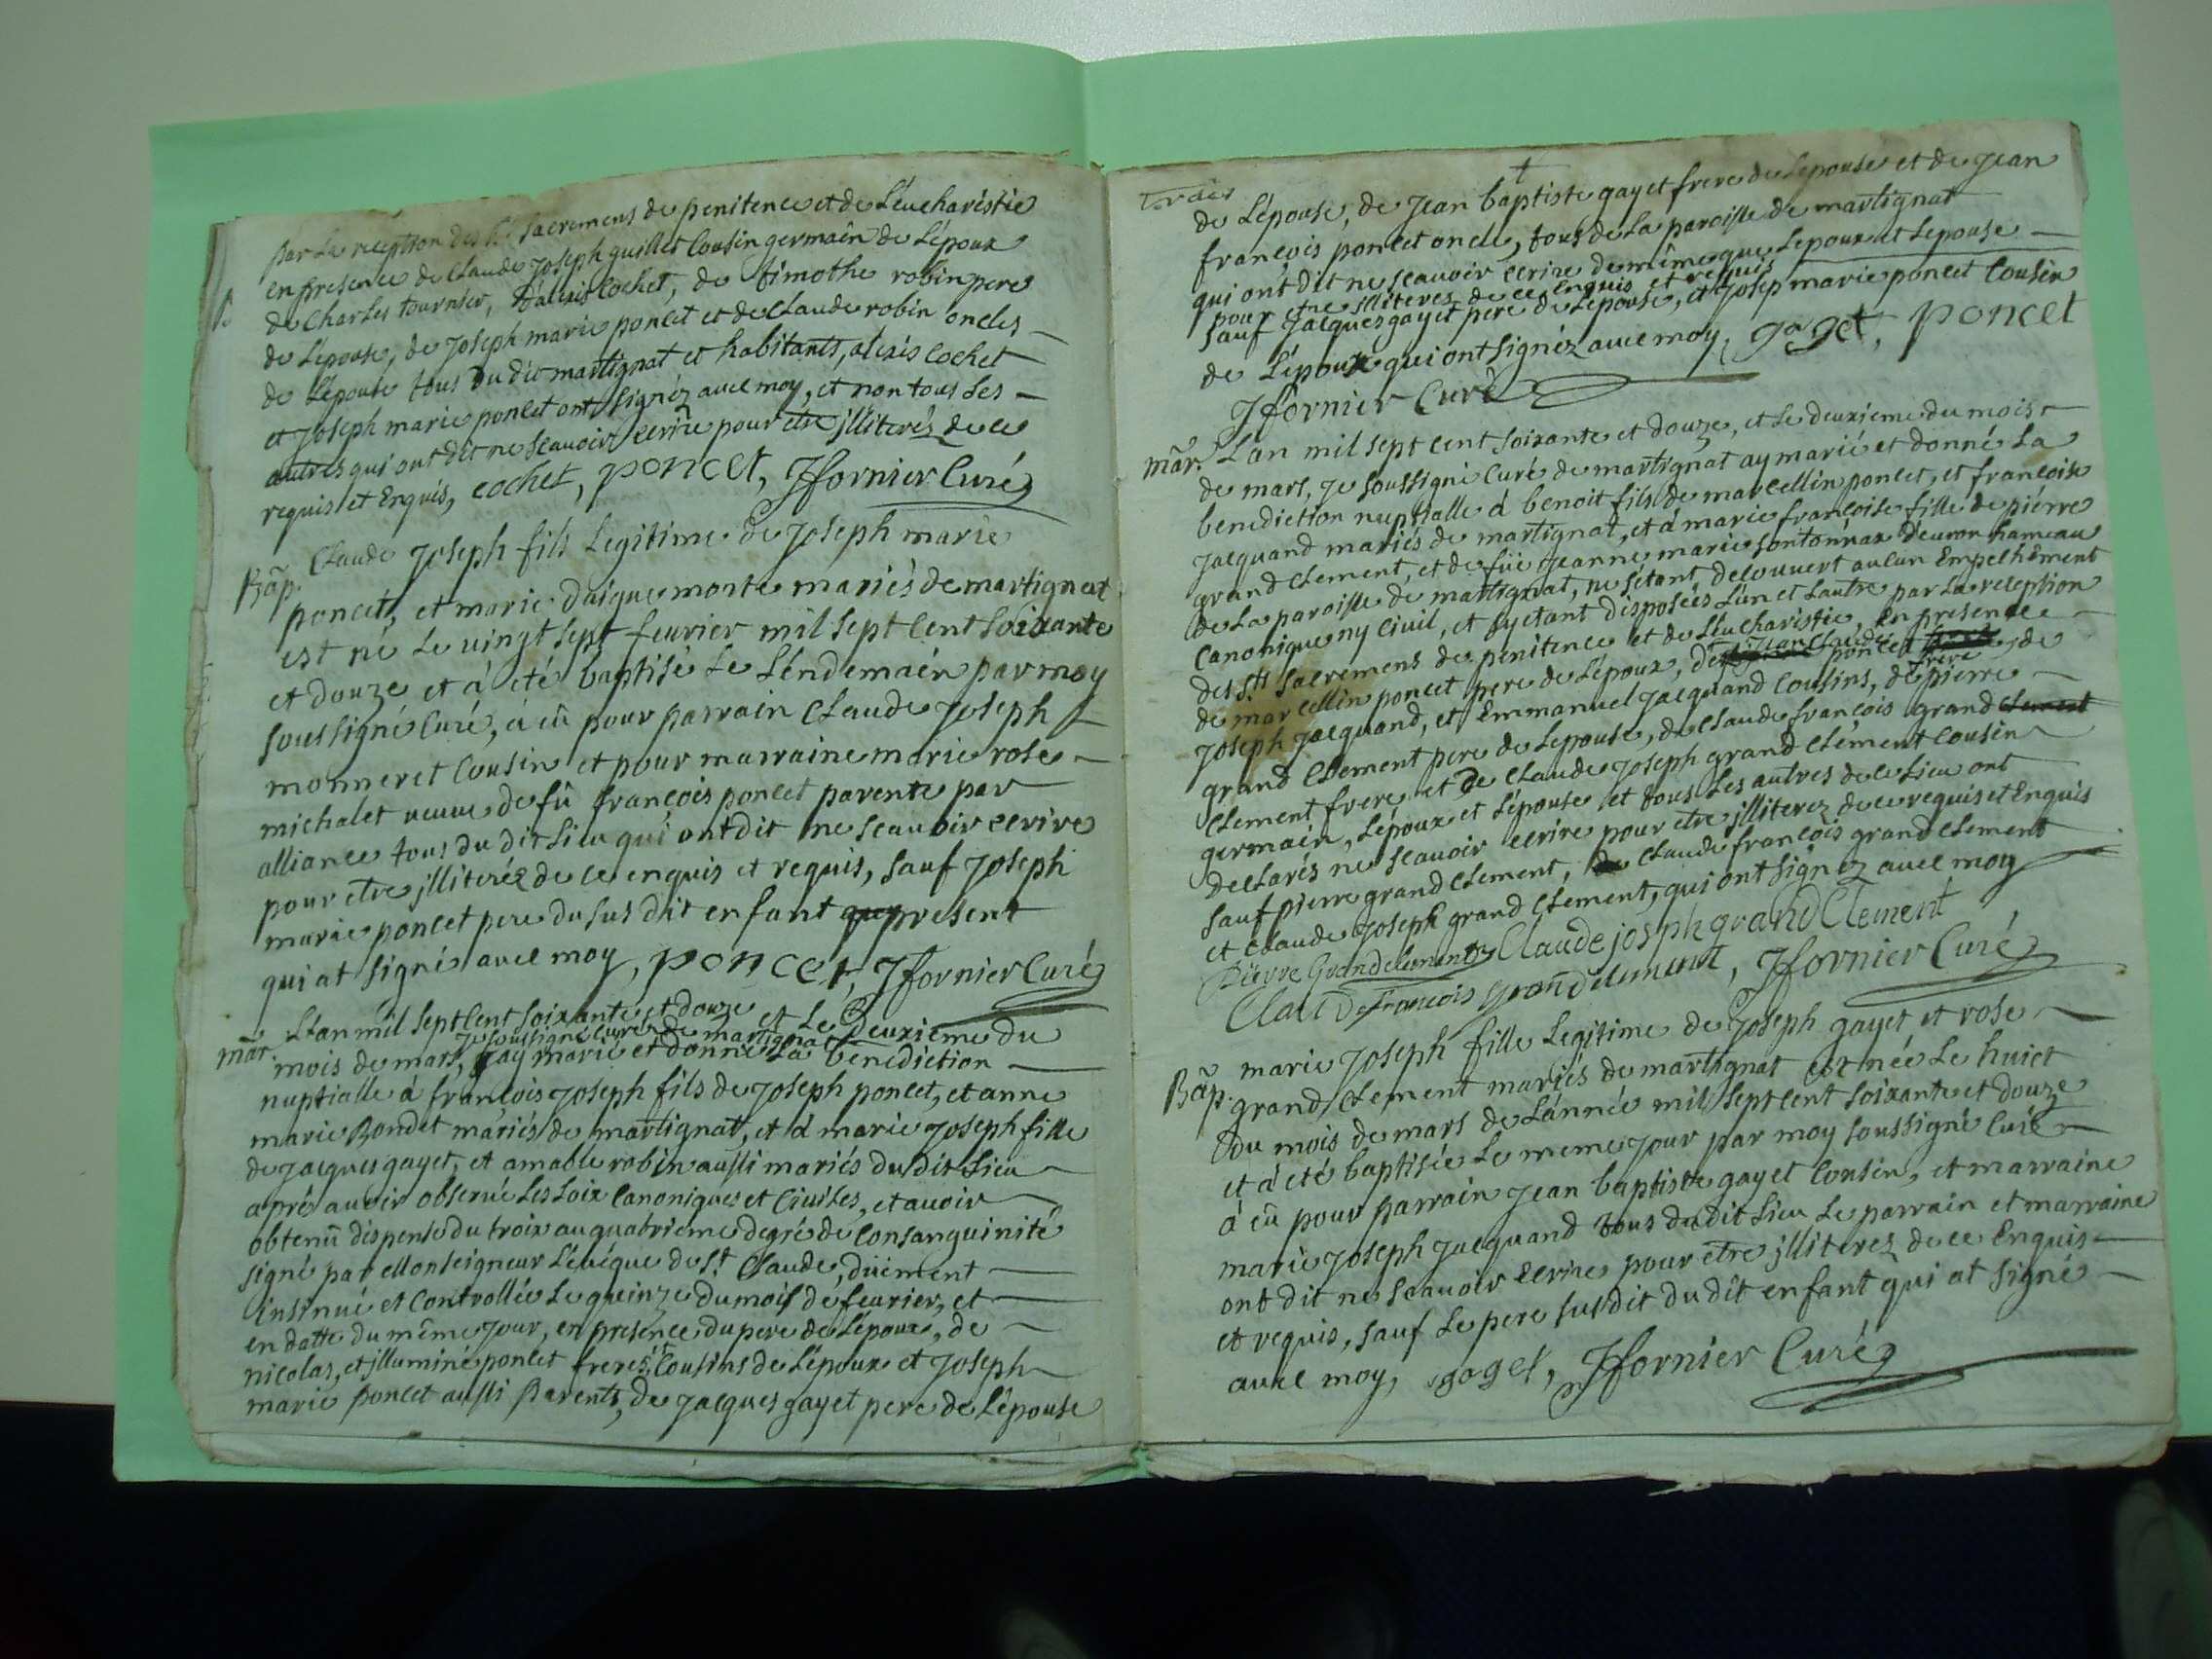 par la reception des sts sacremens de penitence et de Léucharéstie
en presence de Claude Joseph guillet Cousin germain de Lépoux
de Charles tournier, d'alexis Cochet, de timothe robin pere
de Lépouse, de Joseph marie poncet et de Claude robin oncles
de Lépouse tous du dit martignat et habitants, alexis Cochet
et Joseph marie poncet ont signéz avec moy, et non tous Les
autres qui ont dit ne scauoir ecrire pour etre jlliterés de ce
requis et Enquis, cochet, poncet, Jffornier Curé
Bap. Claude Joseph fils Legitime de Joseph marie
poncet, et marie daigue morte mariés de martignat
est né Le uingt sept feurier mil sept Cent Soixante
et douze et à été baptisé Le Lendemain par moy
soussigné Curé, à eû pour parrain Claude Joseph
monneret Cousin et pour marraine marie rose
michalet ueuue de fû françois poncet parente par
alliance tous du dit Lieu qui ont dit ne scauoir ecrire
pour etre jlliteréz de ce enquis et requis, sauf Joseph
marie poncet pere du sus dit enfant present
qui at signé auec moy, poncet, Jffornier Curé
mar. L'an mil sept Cent soixante et douze et Le deuxieme du
Je soussigné Curé de martignat
mois de mars, ay marié et donné La benediction
nuptialle à françois Joseph fils de Joseph poncet, et anne
marie Rondet mariés de martignat, et à marie Joseph fille
de Jacques gayet, et amable robin aussi mariés du dit Lieu
aprés auoir obserué Les Loix Canoniques et Ciuiles, et auoir
obtenû dispense du trois au quatrieme degré de Consanguinité
signé par Monseigneur L'éuéque de st Claude, düement
insinué et Controllée Le quinze du mois de feurier, et
en datte du même Jour, en presence du pere de Lépoux, de
nicolas, et jlluminé poncet freres et Cousins de Lépoux et Joseph
marie poncet aussi Parents, de Jacques gayet pere de Lépouse
de Lépouse, de Jean baptiste gayet frere de Lepouse et de Jean
francois poncet oncle, tous de La paroisse de martignat
qui ont dit ne scauoir ecrire de même que Lepoux et Lepouse
pour etre jlliteres de ce enquis et requis
sauf Jacques gayet pere de Lépouse, et Josep marie poncet Cousin
de Lépoux qui ont signéz auec moy, gaget, poncet
Jffornier Curé
mar. L'an mil sept cent soixante et douze, et Le deuxieme du mois
de mars, Je soussigné Curé de martignat ay marié et donné La
benediction nuptialle à benoit fils de marcellin poncet, et francoise
Jacquand mariés de martignat, et à marie françoise fille de piérre
grand Clement, et de füe Jeanne marie sontonnax d'éuron hameau
de La paroisse de martignat, ne sétant decouuert aucun Empechément
Canonique ny Ciuil, et sy etant disposées L'un et L'autre par La reception
des sts sacremens de penitence et de L'éucharistie, en presence
de marcellin poncet pere de Lépoux, de Jean Claude poncet frere, de
Joseph Jacquand, et Emmanuel Jacquand Cousins, de pierre
grand Clement pere de Lepouse, de Claude françois grand Clement
Clement frere et de Claude Joseph grand Clément Cousin
germain, Lépoux et Lépouse et tous Les autres de ce Lieu ont
declarés ne scauoir ecrire pour etre jlliterez de ce requis et Enquis
sauf pierre grand Clement, Claude françois grand Clement
et Claude Joseph grand Clement, qui ont signéz auec moy
Pierre Grandclement Claude josph grand Clement
Claude François grandclement, Jffornier Curé
Bap. marie Joseph fille Legitime de Joseph gayet et rose
grand Clement mariés de martignat est née Le huict
du mois de mars de L'année mil sept cent soixante et douze
et à été baptisée Le meme Jour par moy soussigné Curé
à eû pour parrain Jean baptiste gayet Cousin, et marraine
marie Joseph Jacquand tous du dit Lieu Le parrain et marraine
ont dit ne scauoir ecrire pour etre jlliterez de ce Enquis
et requis, sauf Le pere susdit du dit enfant qui at signé
auec moy, gaget, Jffornier Curé